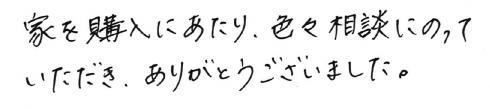 家を購入にあたり、色々相談にのって
いただき、ありがとうございました。